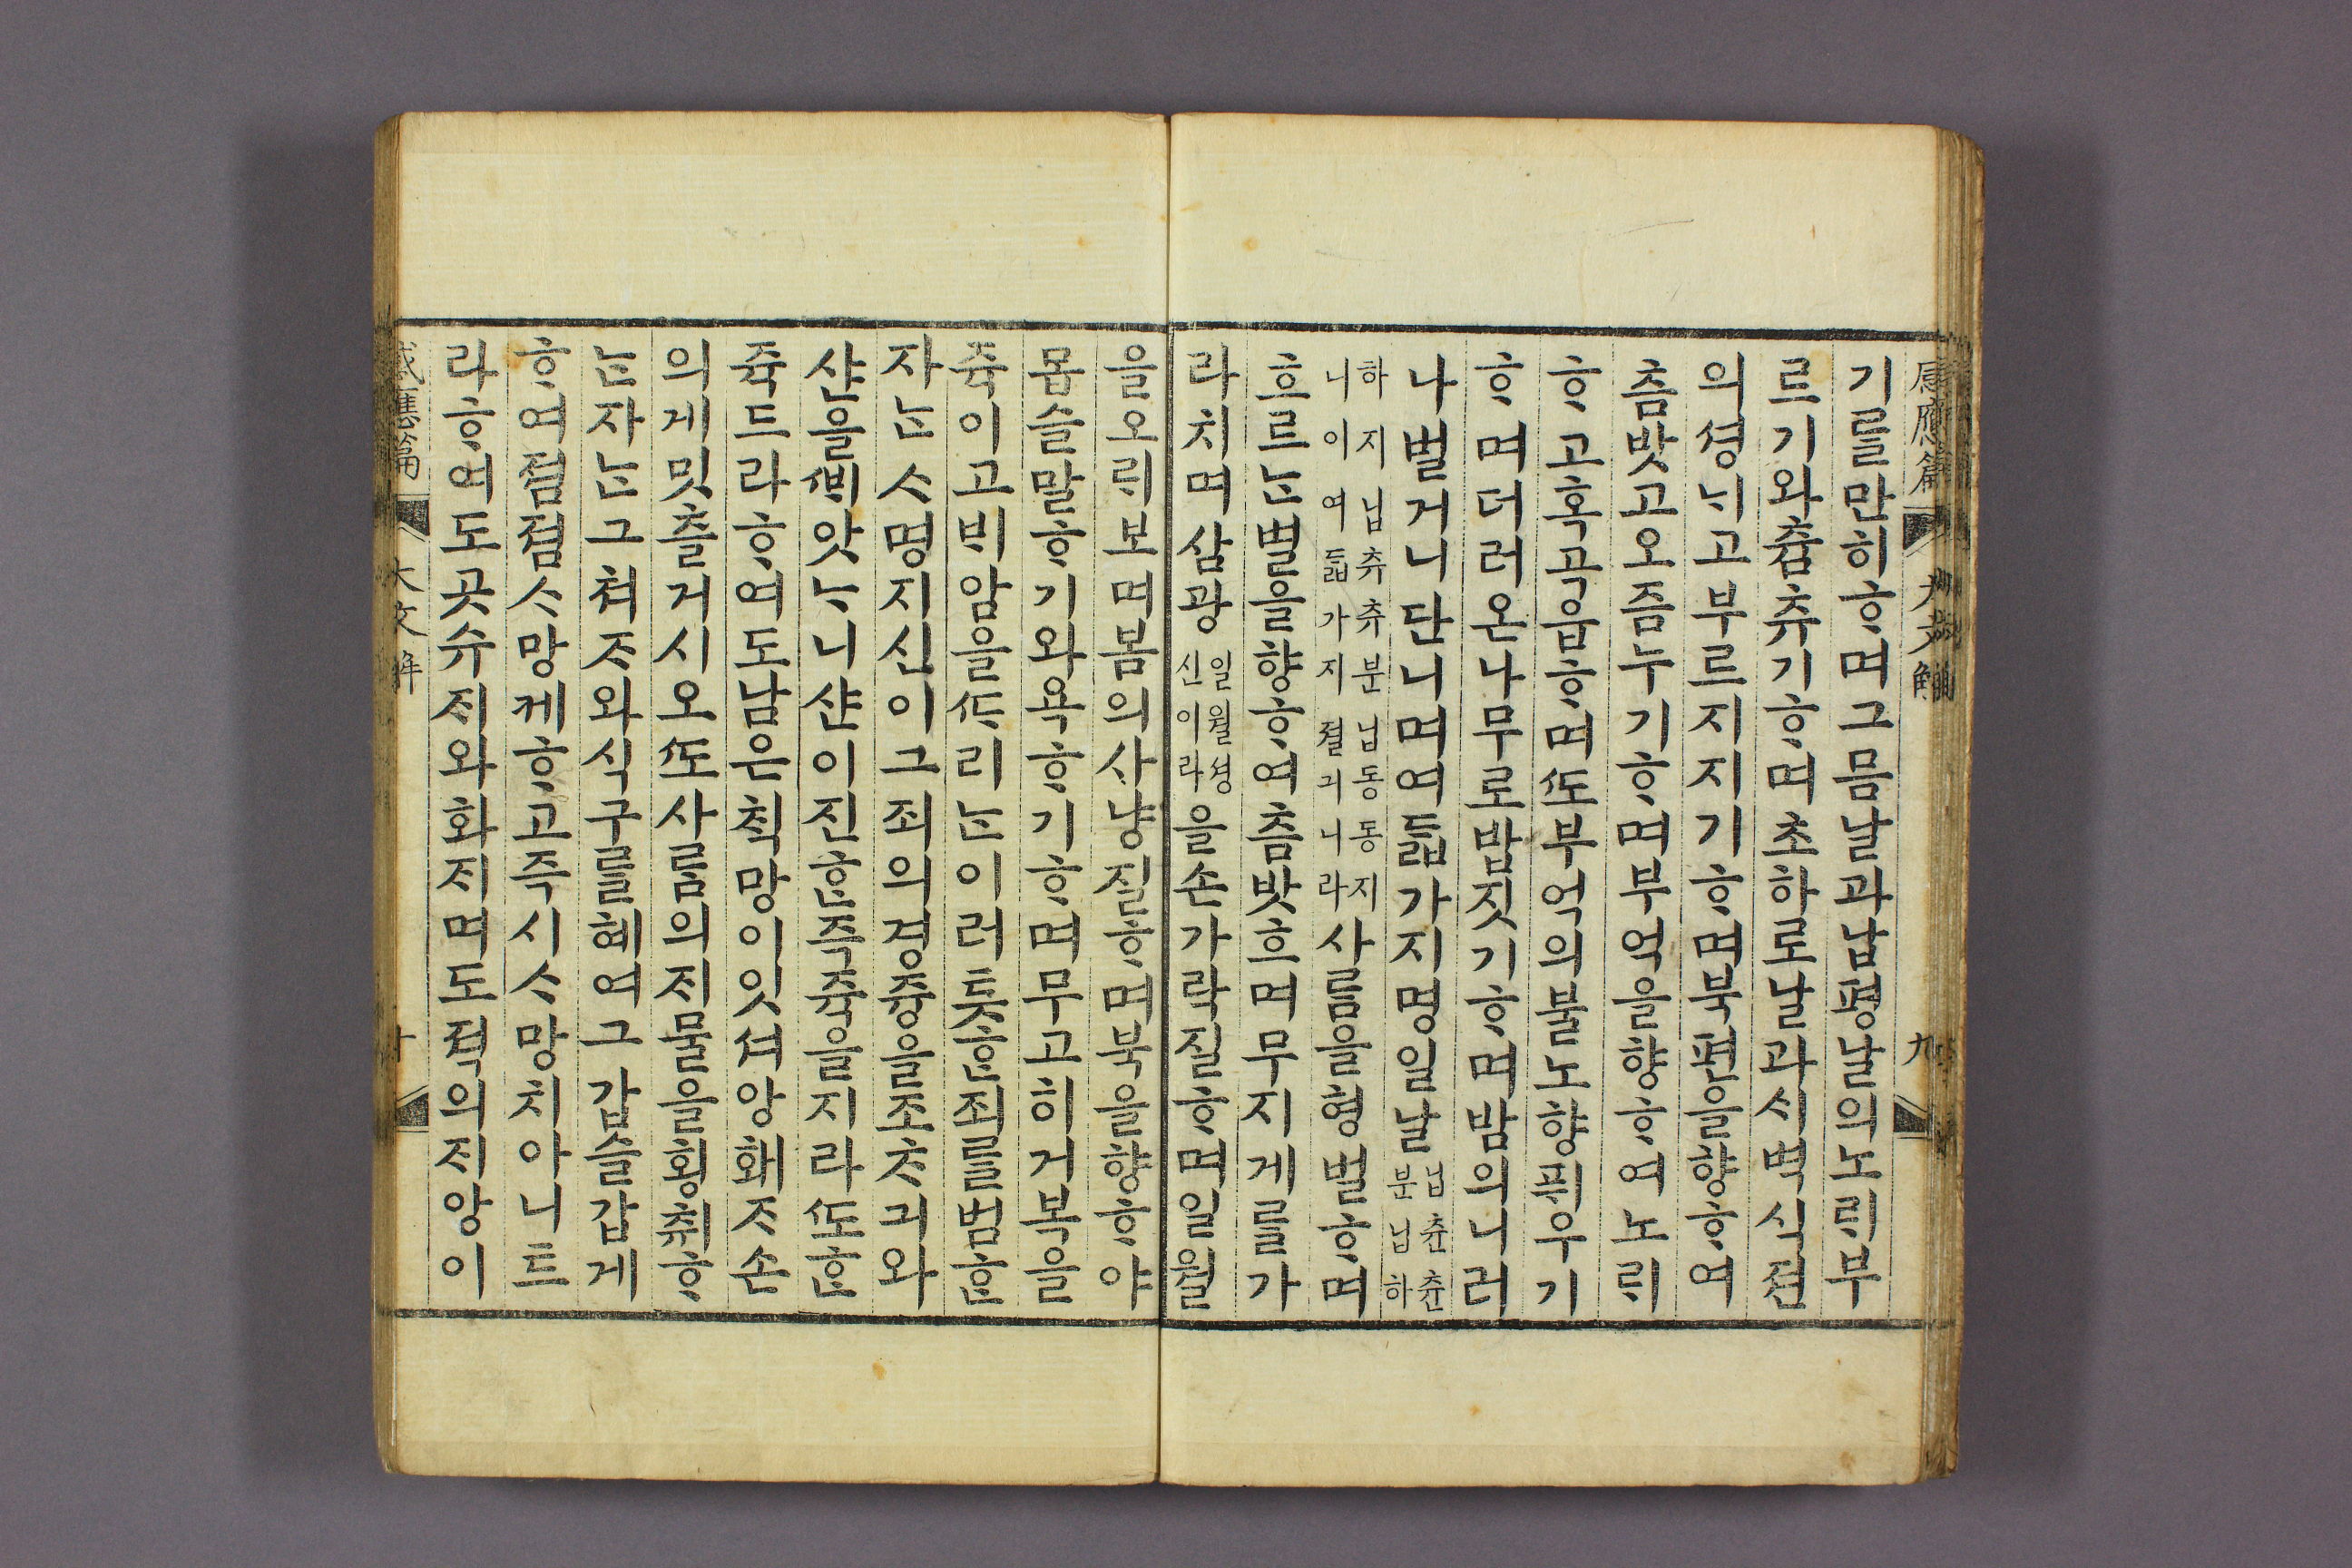 感應篇 大文解 九
기를만히ᄒᆞ며그믐날과납평날의노ᄅᆡ부
르기와츔츄기ᄒᆞ며초하로날과ᄉᆡ벽신젼
의셩ᄂᆡ고부르지지기ᄒᆞ며북편을향ᄒᆞ여
츔맛고오즘누기ᄒᆞ며부억을향ᄒᆞ여노ᄅᆡ
ᄒᆞ고혹곡읍ᄒᆞ며ᄯᅩ부억의불노향픠우기
ᄒᆞ며더러온나무로밥짓기ᄒᆞ며밤의니러
나벌거니단니며여듧가지명일날닙츈츈분닙하
하지닙츄츄분닙동동지니이여듧가지졀긔니라사ᄅᆞᆷ을형벌ᄒᆞ며
흐르ᄂᆞᆫ별을향ᄒᆞ여츔맛흐며무지게를가
라치며삼광일월셩신이라을손가락질ᄒᆞ며일월
을오ᄅᆡ보며봄의사냥질ᄒᆞ며북을향ᄒᆞ야
몹슬말ᄒᆞ기와욕ᄒᆞ기ᄒᆞ며무고히거북을
쥭이고ᄇᆡ암을ᄯᆞ리ᄂᆞᆫ이러틋ᄒᆞᆫ죄를범ᄒᆞᆫ
자ᄂᆞᆫᄉᆞ명지신이그죄의경즁을조ᄎᆞ긔와
샨을ᄲᆡ앗ᄂᆞ니샨이진ᄒᆞᆫ즉쥭을지라ᄯᅩᄒᆞᆫ
쥭드라ᄒᆞ여도남은ᄎᆡᆨ망이잇셔앙화ᄌᆞ손
의게밋츨거시오ᄯᅩ사ᄅᆞᆷ의ᄌᆡ물을횡ᄎᆔᄒᆞ
ᄂᆞᆫ자ᄂᆞᆫ그쳐ᄌᆞ와식구를혜여그갑슬갑게
ᄒᆞ여졈졈ᄉᆞ망케ᄒᆞ고즉시ᄉᆞ망치아니트
라ᄒᆞ여도곳슈ᄌᆡ와화ᄌᆡ며도젹의ᄌᆡ앙이
感應篇 大文解 十